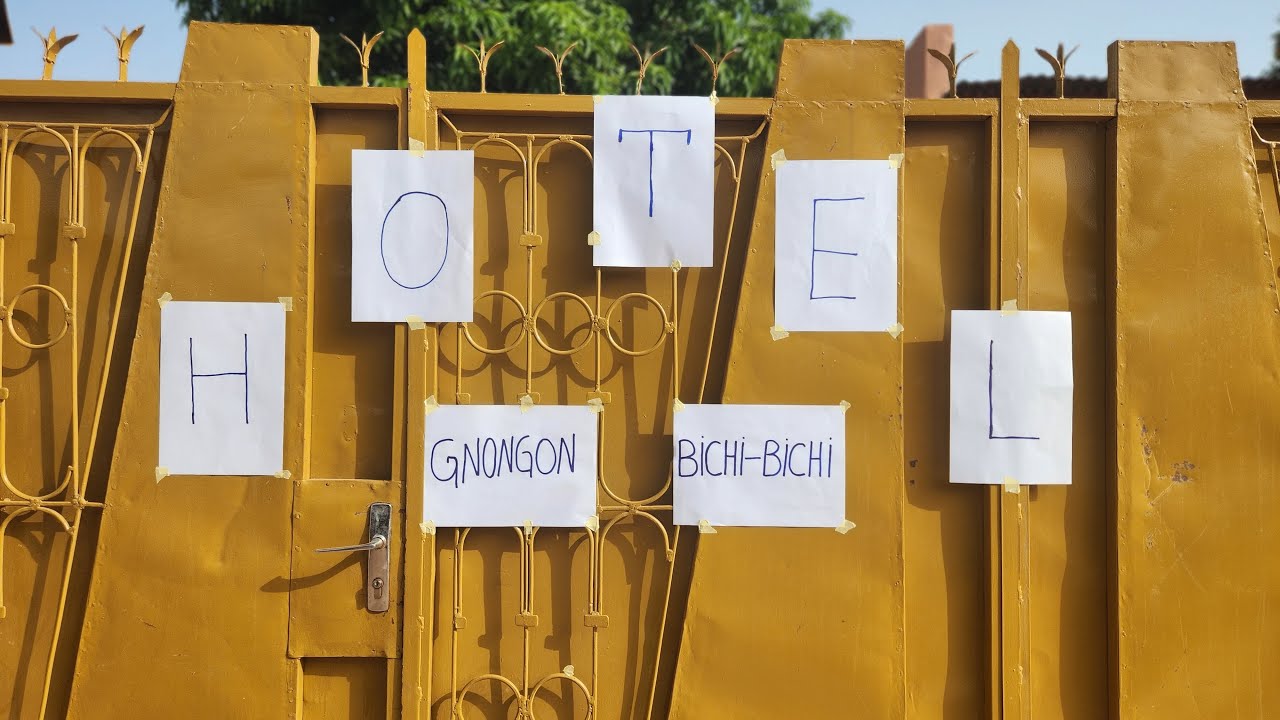 HOTEL
GNONGON BiCHi-BiCHi